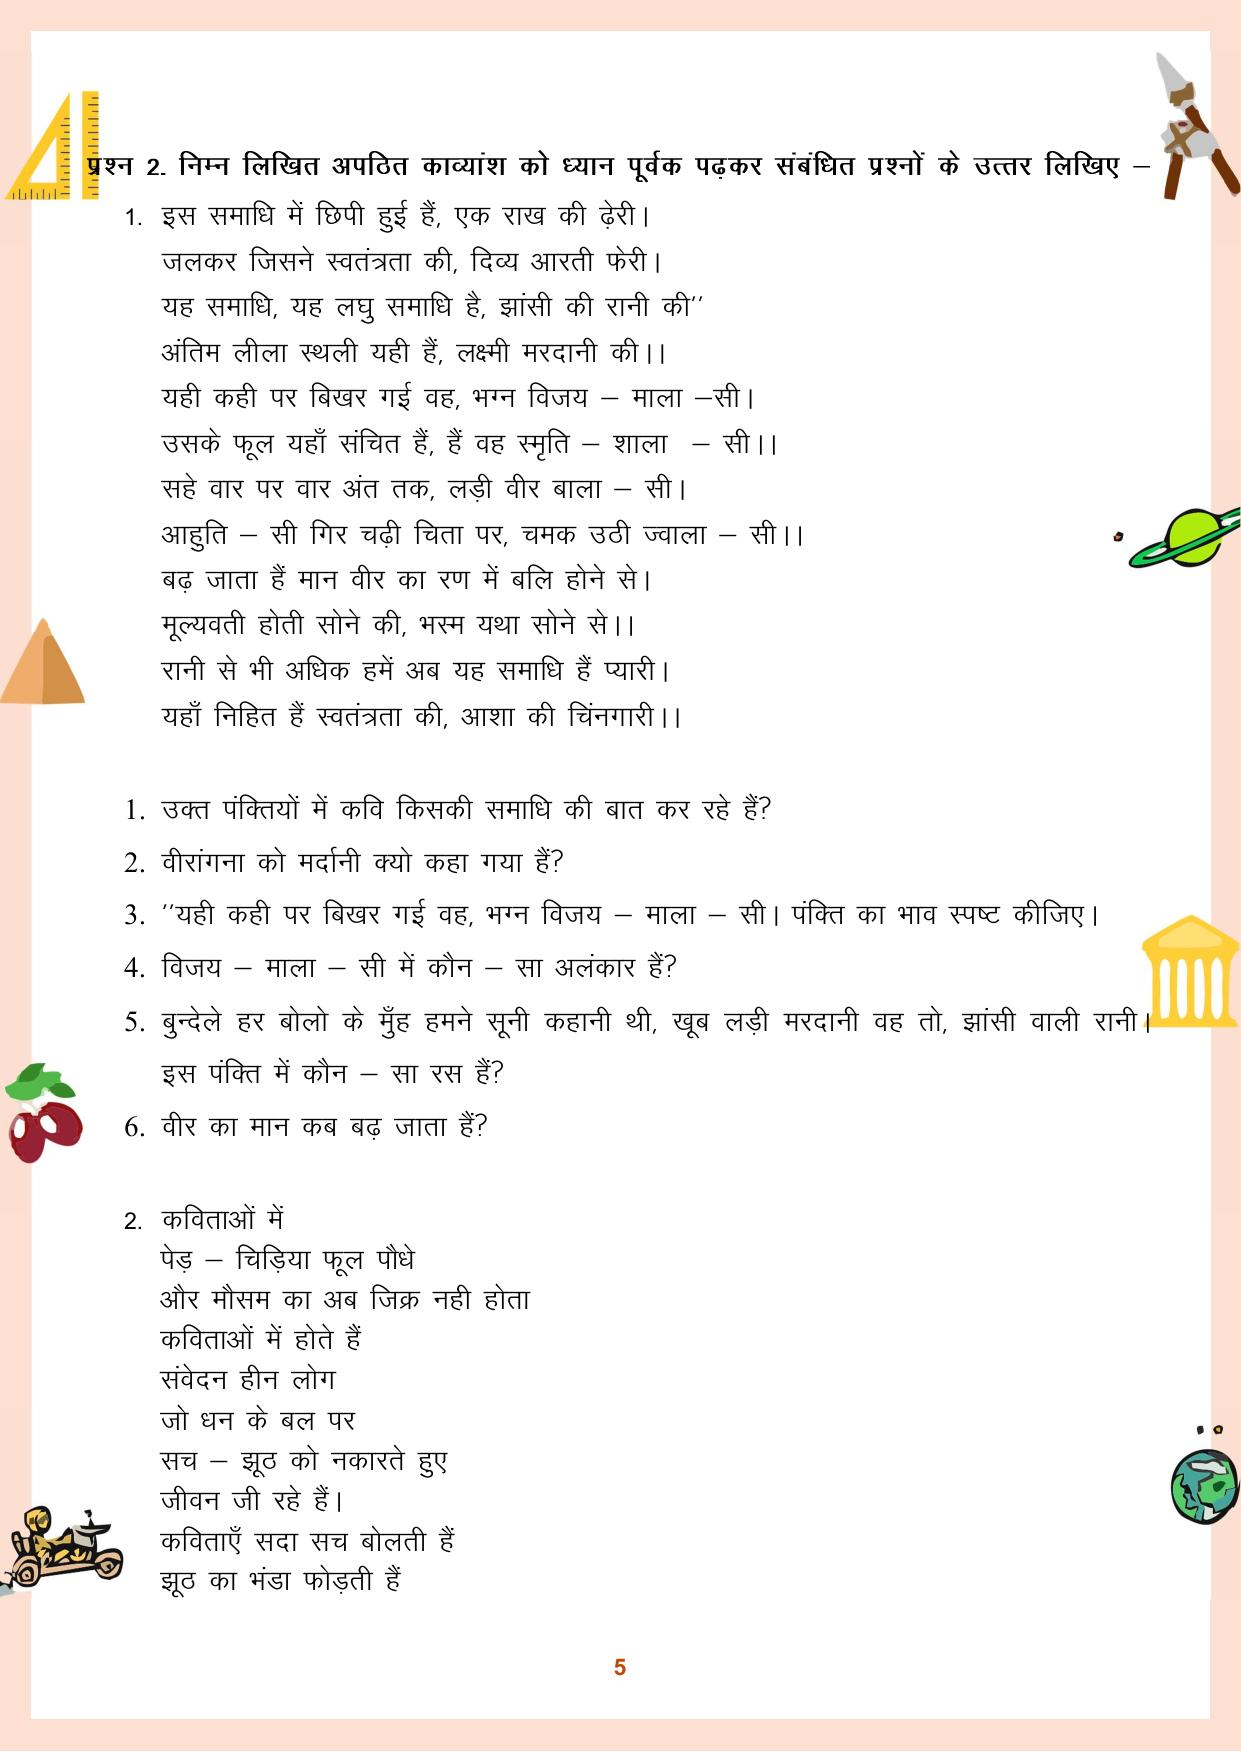 प्रश्न 2. निम्न लिखित अपठित काव्यांश को ध्यान पूर्वक पढ़कर संबंधित प्रश्नों के उत्तर लिखिए –
1. इस समाधि में छिपी हुई हैं, एक राख की ढ़ेरी।
जलकर जिसने स्वतंत्रता की, दिव्य आरती फेरी।
यह समाधि, यह लघु समाधि है, झांसी की रानी की''
अंतिम लीला स्थली यही हैं, लक्ष्मी मरदानी की।।
यही कही पर बिखर गई वह, भग्न विजय – माला –सी।
उसके फूल यहाँ संचित हैं, हैं वह स्मृति – शाला – सी।।
सहे वार पर वार अंत तक, लड़ी वीर बाला – सी।
आहुति – सी गिर चढ़ी चिता पर, चमक उठी ज्वाला – सी।।
बढ़ जाता हैं मान वीर का रण में बलि होने से।
मूल्यवती होती सोने की, भस्म यथा सोने से।।
रानी से भी अधिक हमें अब यह समाधि हैं प्यारी।
यहाँ निहित हैं स्वतंत्रता की, आशा की चिंनगारी।।
1. उक्त पंक्तियों में कवि किसकी समाधि की बात कर रहे हैं?
2. वीरांगना को मर्दानी क्यो कहा गया हैं?
3. ''यही कही पर बिखर गई वह, भग्न विजय – माला – सी। पंक्ति का भाव स्पष्ट कीजिए।
4. विजय – माला – सी में कौन – सा अलंकार हैं?
5. बुन्देले हर बोलो के मुँह हमने सूनी कहानी थी, खूब लड़ी मरदानी वह तो, झांसी वाली रानी।
इस पंक्ति में कौन – सा रस हैं?
6. वीर का मान कब बढ़ जाता हैं?
2. कविताओं में
पेड़ – चिड़िया फूल पौधे
और मौसम का अब जिक्र नही होता
कविताओं में होते हैं
संवेदन हीन लोग
जो धन के बल पर
सच – झूठ को नकारते हुए
जीवन जी रहे हैं।
कविताएँ सदा सच बोलती हैं
झूठ का भंडा फोड़ती हैं
5